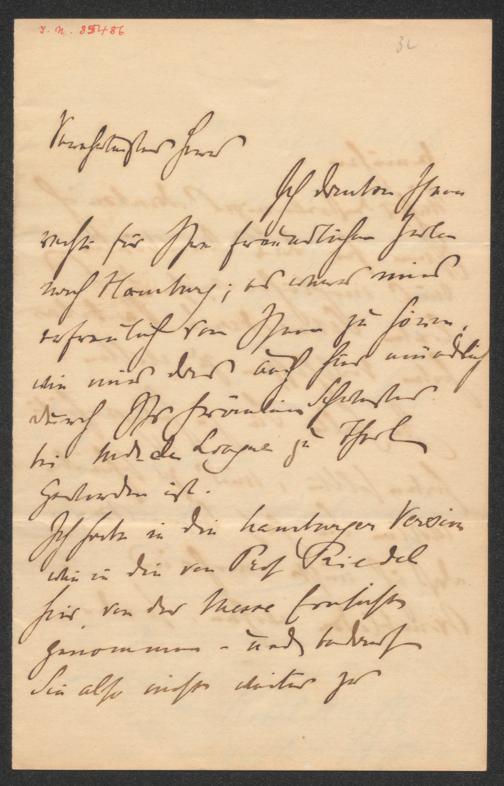 J. N. 85486
32
Verehrtester Herr
Ich danke Ihnen
recht für Ihre freundlichen Zeilen
nach Hamburg; es war mir
erfreulich von Ihnen zu hören,
wie mir das auch hier mündlich
durch Ihr Fräulein Schwester
bei zu Theil
geworden ist.
Ich habe in die hamburger Version
wie in die von Prof Riedel
hier von der Messe Einsicht
genommen – und bedarf
Sie also nicht weiter zu